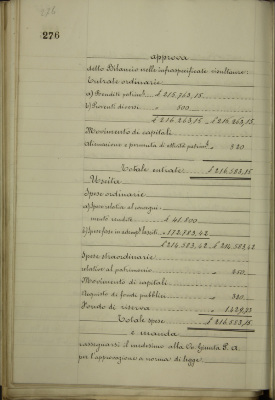 276
276
approva
detto Bilancio nelle infraspecificate risultanze:
Entrate ordinarie
a) Rendite patrim. £ 215,763,15
b) Proventi diversi " 500
£ 216,263,15 £ 216,263,15
Movimento di capitali
alienazione e permuta di attività patrim. " 320
Totale entrate £ 216,583,15
Uscita
Spese ordinarie
a) Spese relative ai
£ 41,800
b) Spese fisse " 172,783,42
£ 214,583,42 £ 214,583,42
Spese straordinarie
relative al patrimonio " 250
Movimento di capitali
Acquisto di fondi pubblici " 320
Fondo di riserva " 1429,73
Totale spese £ 216,583,15
e manda
rassegnarsi il medesimo alla On. Giunta P. A.
per l'approvazione a norma di legge